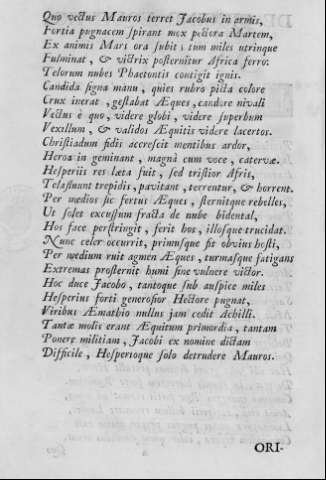 Quo vectus Mauros terret Jacobus in armis,
Fortia pugnacem spirant mox pectora Martem,
Ex animis Mars ora subit; tum miles utrinque
Fulminat, & victrix posternitur Africa ferro:
Telorum nubes Phaetontis contigit ignis.
Candida signa manu, quies rubro picta colore
Crux inerat, gestabat Æques, candore nivali
Vectus è quo, videre globi, videre superbum
Vexillum, & validos Æquitis videre lacertos.
Christiadum fidis accrescit mentibus ardor,
Heroa in geminant, magnà cum voce, catervæ.
Hesperiis res læta fuit, sed tristior Afris,
Telassuunt trepidis, pavitant, terrentur, & horrent.
Per medios sic fertus Æques, sternitque rebelles,
Ut solet excussum fracta de nube bidental,
Hos face perstringit, ferit hos, illosque trucidat.
Nunc celer occurrit, primusque fit obvius hosti,
Per medium ruit agmen Æques, turmasque fatigans
Extremas prosternit humi sine vulnere victor.
Hoc duce Jacobo, tantoque sub auspice miles
Hesperius forti generosior Hectore pugnat,
Viribus Æmathio nullus jam cedit Achilli.
Tantæ molis erant Æquitum primordia, tantam
Ponere militiam, Jacobi ex nomine dictam
Difficile, Hesperioque solo detrudere Mauros.
ORI-